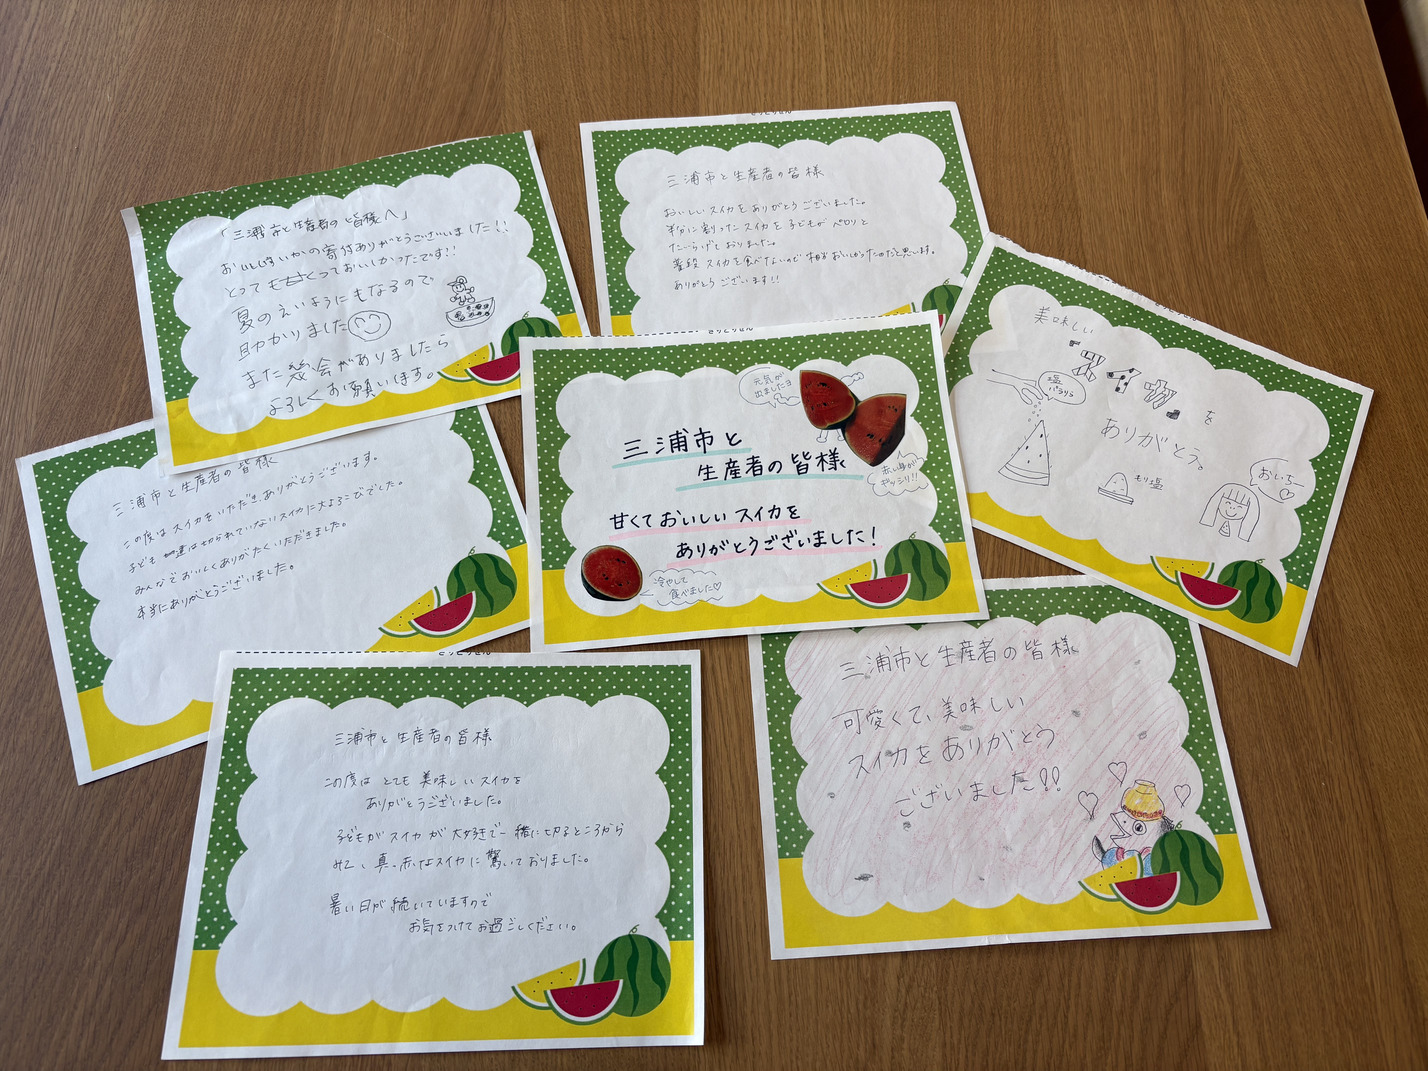 「三浦市と生産者の皆様へ」
おいしいすいかの寄付ありがとうございました!!
とっても甘くっておいしかったです!!
夏のえいようにもなるので
助かりました
また幾会がありましたら
よろしくお願いします。
きりとりせん
三浦市と生産者の皆様
おいしいスイカをありがとうございました。
半分に割ったスイカを子どもがペロリと
たいらげておりました。
普段スイカを食べないので相当おいしかったのだと思います。
ありがとうございます!!
美味しい
スイカを
ありがとう。
塩パラパラ
もり塩
おいちー♡
三浦市と生産者の皆様
この度はスイカをいただき、ありがとうございます。
子ども達は切られていないスイカに大よろこびでした。
みんなでおいしくありがたくいただきました。
本当にありがとうございました。
きりとりせん
元気が
出ましたヨ
三浦市と
生産者の皆様
赤い身が
ギッシリ!!
甘くておいしいスイカを
ありがとうございました!
冷やして
食べました♡
三浦市と生産者の皆様
可愛くて、美味しい
スイカをありがとう
ございました!!
きりとりせん
三浦市と生産者の皆様
この度はとても美味しいスイカを
ありがとうございました。
子どもがスイカが大好きで一緒に切るところから
みて、真っ赤なスイカに驚いておりました。
暑い日が続いていますので
お気をつけてお過ごしください。